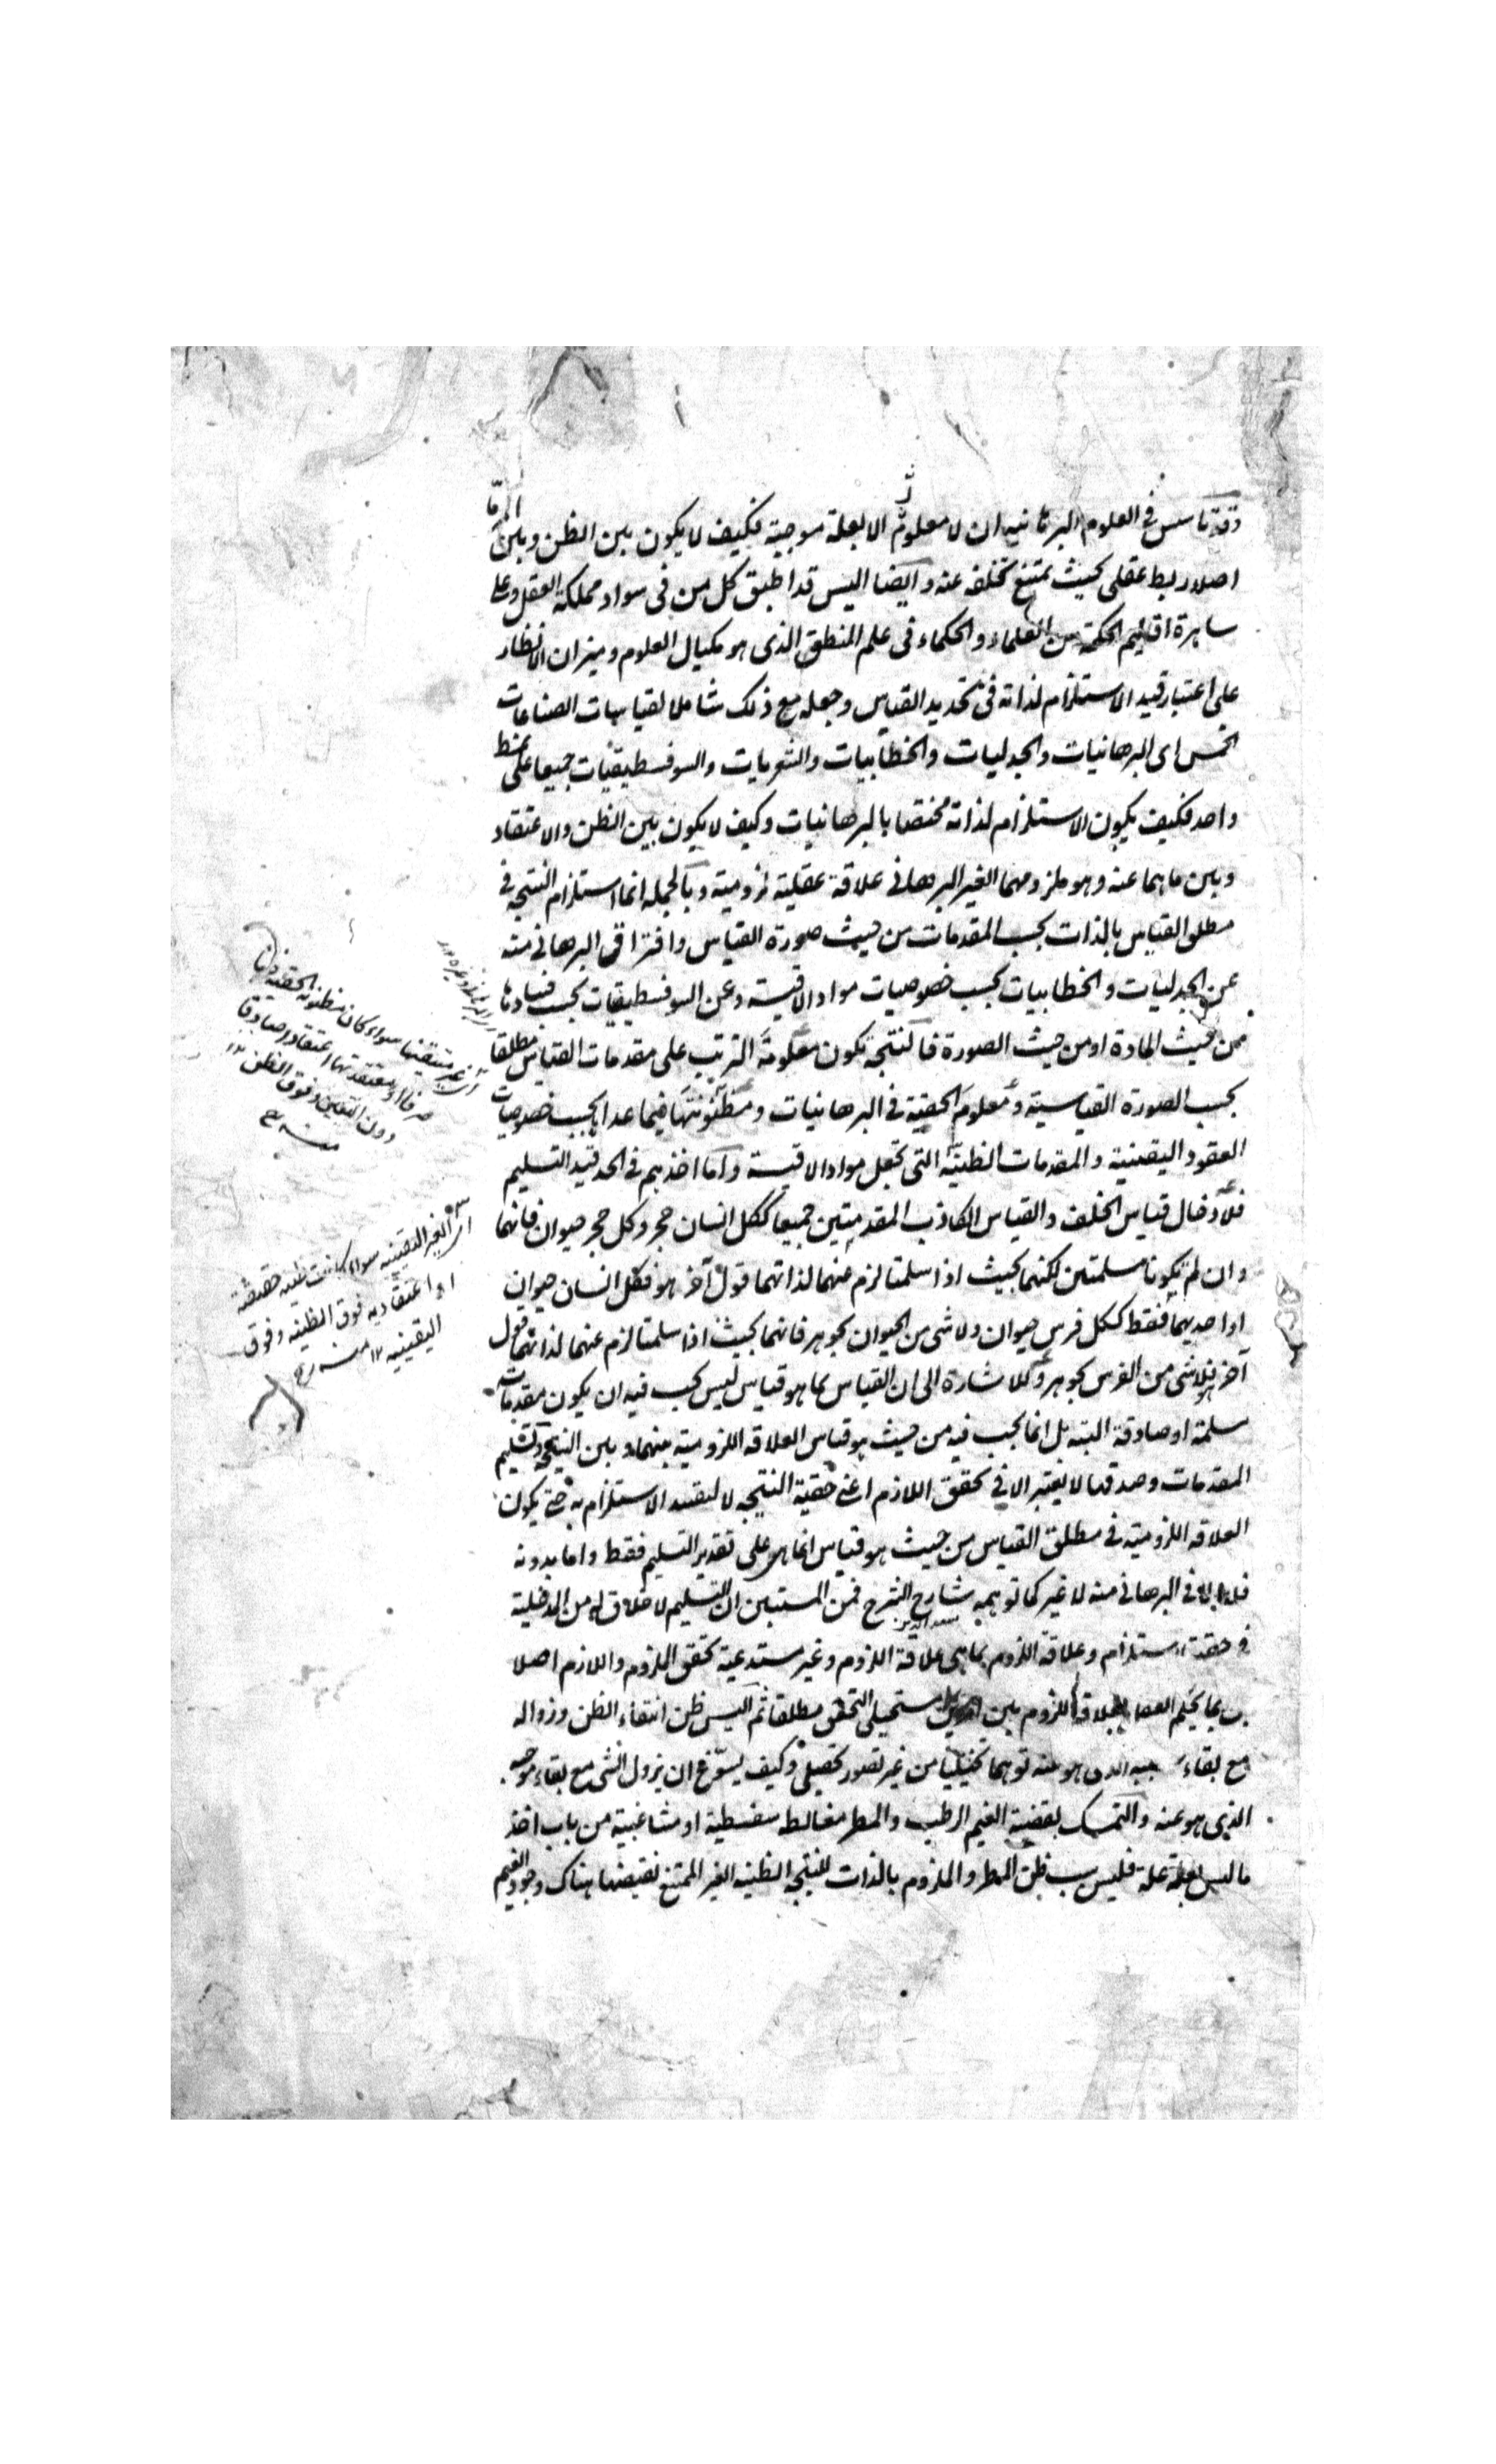 وقد تاسس في العلوم البرهانيه ان لا معلول الا بعلة موجبة فكيف لا يكون بين الظن وبين
اصلا ربط عقلي بحيث يمتنع تخلفه عنه وايضا اليس قد اطبق كل من في سواد مملكة العقل وعلى
ساهرة اقاليم الحكمة من العلماء والحكماء في علم المنطق الذي هو مكيال العلوم وميزان الانظار
على اعتبار قيد الاستلزام لذاته في تحديد القياس وجعله مع ذلك شاملا لقياسات الصناعات
الخمس اى البرهانيات والجدليات والخطابيات والشعريات والسوفسطيقيات جميعا على نمط
واحد فكيف يكون الاستلزام لذاته مختصا بالبرهانيات وكيف لا يكون بين الظن والاعتقاد
وبين ماهما عنه وهو ملزومهما الغير البرهاني علاقة عقلية لزومية وبالجمله انما استلزام النتيجه في
مطلق القياس بالذات بحسب المقدمات من حيث صورة القياس وافتراق البرهاني منه
عن الجدليات والخطابيات بحسب خصوصيات مواد الاقيسة وعن السوفسطيقيات بحسب فسادها
من حيث المادة او من حيث الصورة فالنتيجه تكون معلومة الترتب على مقدمات القياس مطلقا
بحسب الصورة القياسية ومعلومة الحقية في البرهانيات ومظنونتها فيما عداها بحسب خصوصيات
العقود اليقينية والمقدمات الظنيه التي تجعل مواد الاقيسة واما اخذهم في الحد قيد التسليم
فلادخال قياس الخلف والقياس الكاذب المقدمتين جميعا ككل انسان حجر وكل حجر حيوان فانهما
وان لم يكونا مسلمتين لكنهما بحيث اذا سلمتا لزم عنهما لذاتهما قول آخر هو فكل انسان حيوان
او احديهما فقط ككل فرس حيوان ولا شى من الحيوان بجوهر فانهما بحيث اذا سلمتا لزم عنهما لذاتهما قول
آخر هو فلا شى من الفرس بجوهر وللاشارة الى ان القياس بما هو قياس ليس يجب فيه ان يكون مقدماته
مسلمة او صادقة البته بل انما يجب فيه من حيث هو قياس العلاقه اللزومية بينهما وبين النتيجه وتسليم
المقدمات وصدقها لا يعتبر الا في تحقق اللازم اعني حقية النتيجه لا لتقييد الاستلزام به حتى يكون
العلاقه اللزومية في مطلق القياس من حيث هو قياس انما هو على تقدير التسليم فقط واما بدونه
فلا الا في البرهاني منه لا غير كما توهمه شارح الشرح فمن المستبين ان التسليم لا خلاق له من المدخلية
سعد الدين
في حقيقة الاستلزام وعلاقة اللزوم بما هى علاقة اللزوم وغير مستدعية تحقق الملزوم واللازم اصلا
بل بما يحكم العقل بعلاقة اللزوم بين امرين مستحيلى التحقق مطلقا ثم اليس ظن انتفاء الظن وزواله
مع بقاء سببه الذى هو عنه توهما تخييليا من غير تصور تحصيلى وكيف يسوغ ان يزول الشى مع بقاء موجبه
الذى هو عنه والتمسك بقضية الغيم الرطب والمطر مغالطه سفسطية او مشاغبية من باب اخذ
ما ليس بعلة علة فليس سبب ظن المطر والملزوم بالذات للنتيجه الظنيه الغير الممتنع نقيضها هناك وجود الغيم
اى غير متيقنها سواء كان مظنونة الحقية
صرفا او معتقدتها اعتقادا صادقا
دون اليقين وفوق الظن ١٢
منه رح
اى الغير اليقينيه سواء كانت ظنيه حقيقة
او اعتقاديه فوق الظنيه وفوق
اليقينيه ١٢ منه رح